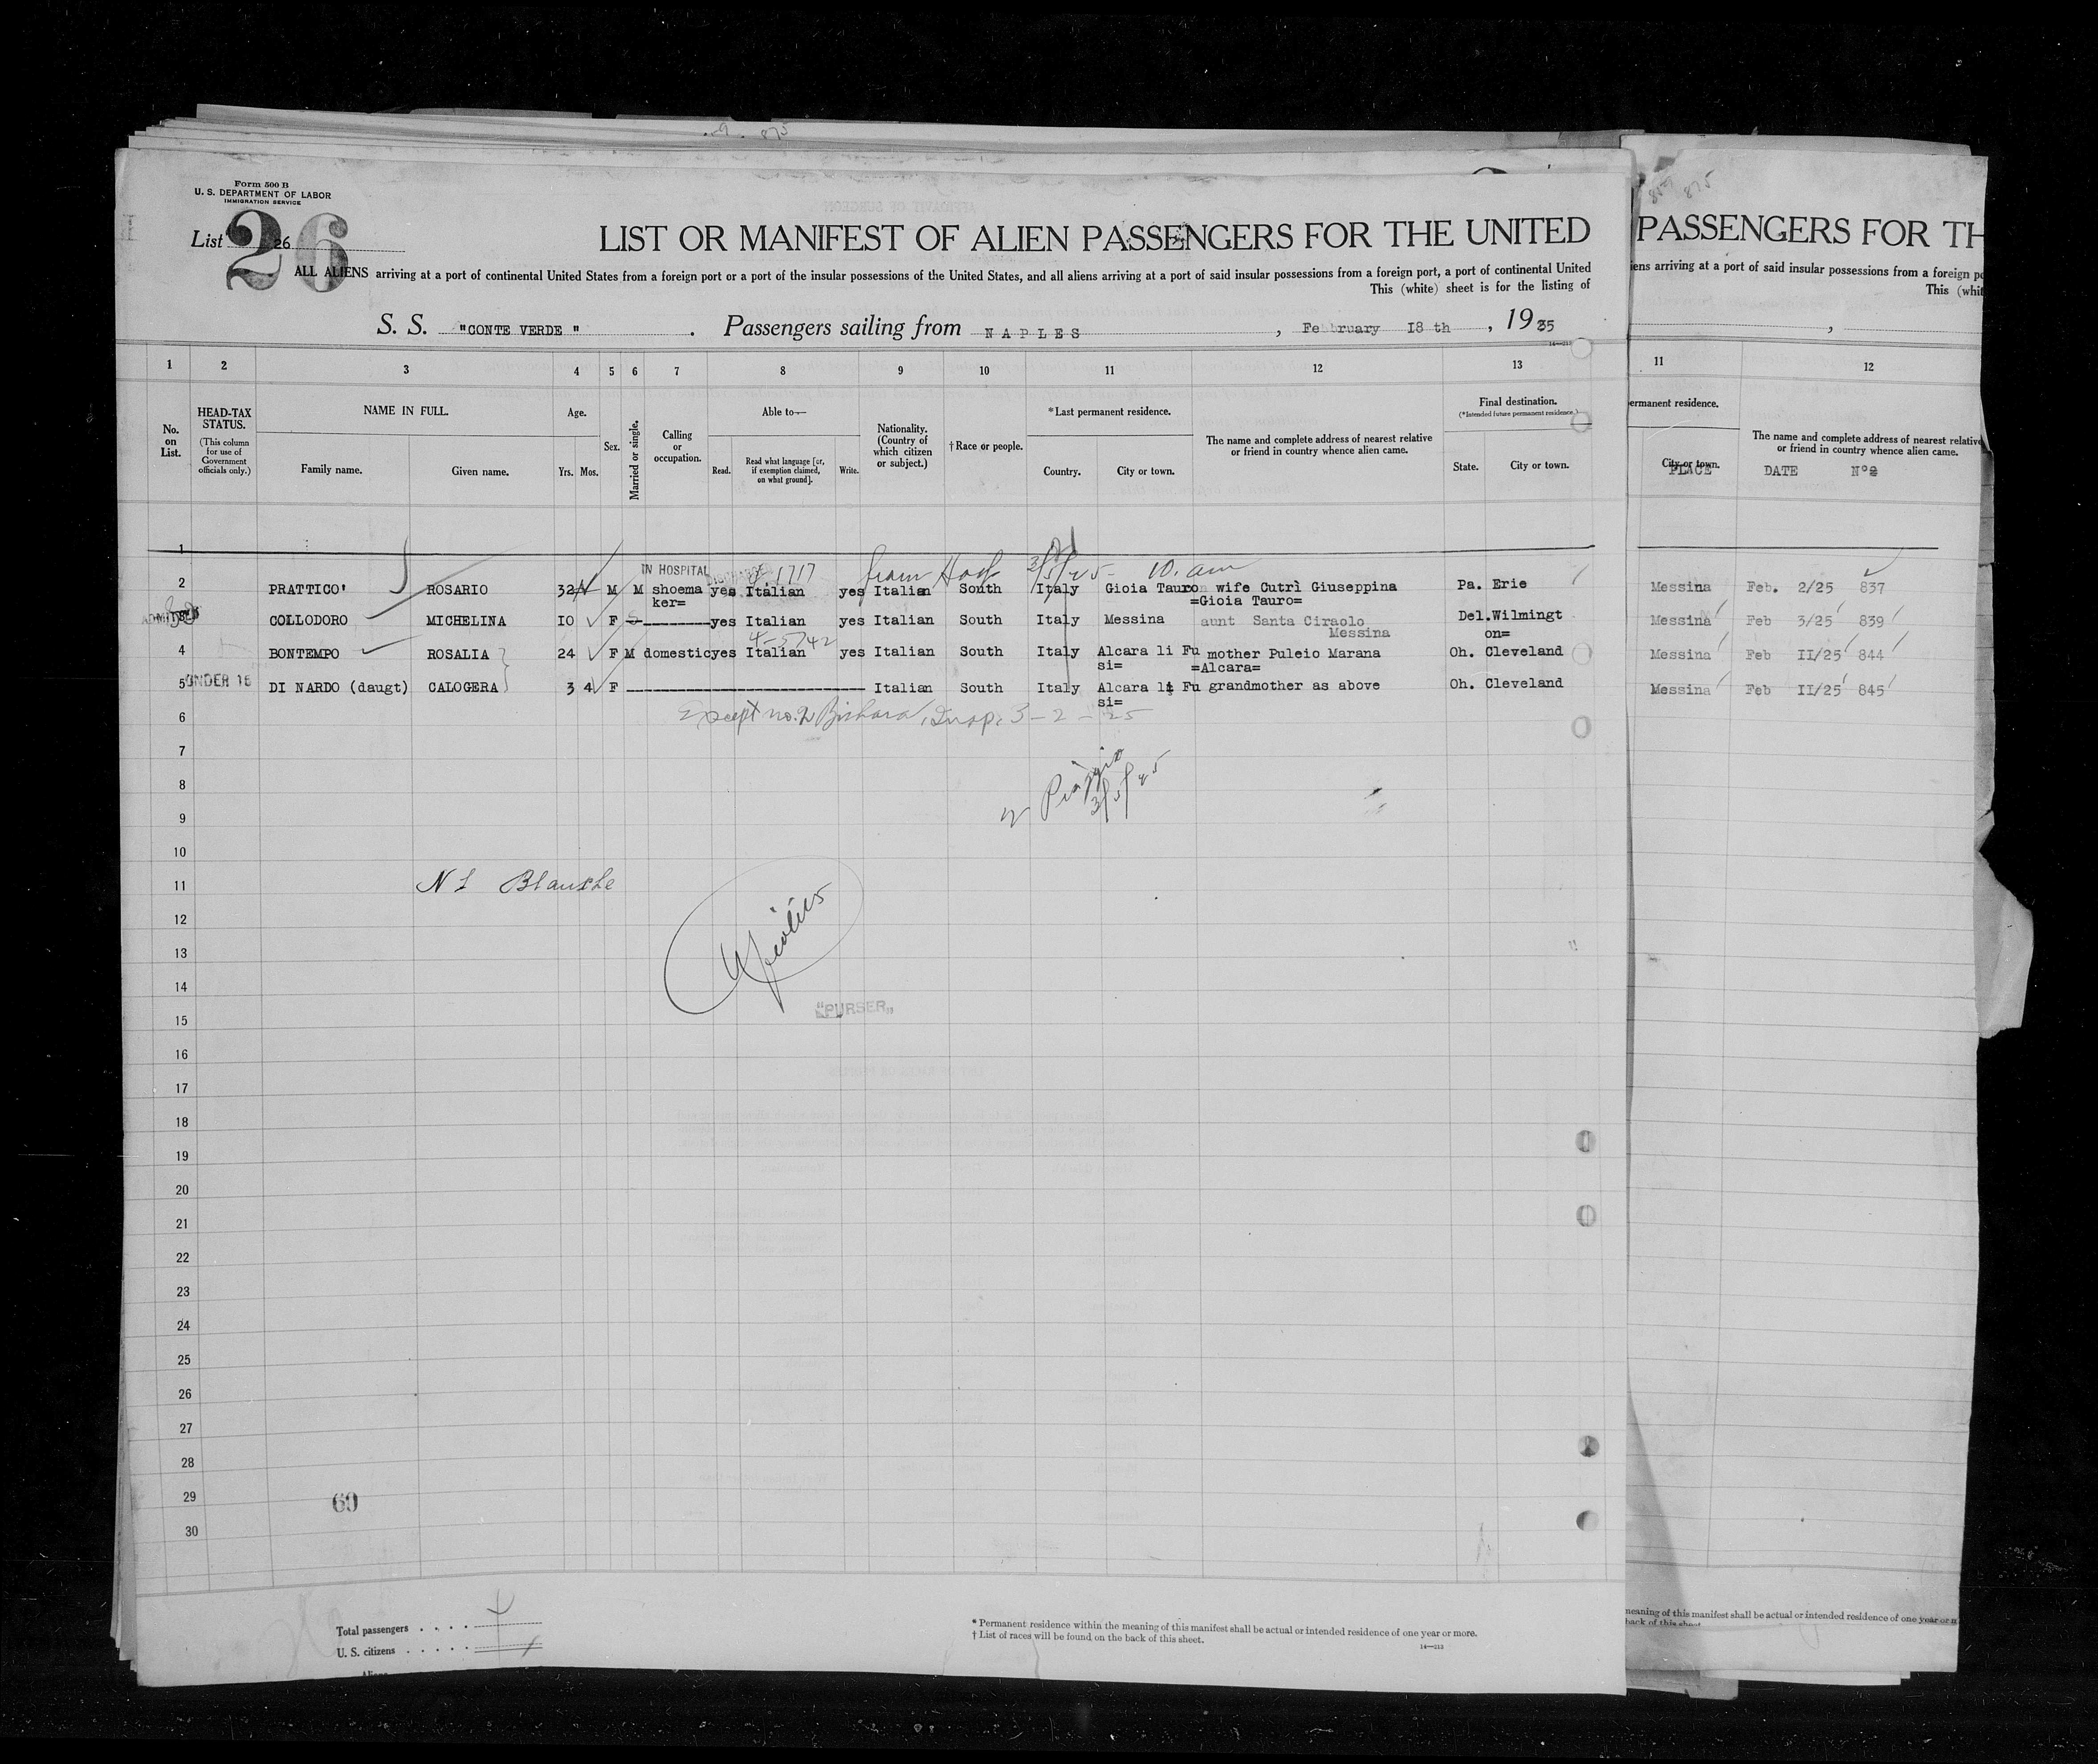 Form 500 B
U. S. DEPARTMENT OF LABOR
IMMIGRATION SERVICE
List 26
26
LIST OR MANIFEST OF ALIEN PASSENGERS FOR THE UNITED
ALL ALIENS arriving at a port of continental United States from a foreign port or a port of the insular possessions of the United States, and all aliens arriving at a port of said insular possessions from a foreign port, a port of continental United
This (white) sheet is for the listing of
S. S. "CONTE VERDE". Passengers sailing from NAPLES, February 18 th, 19
1 2 3 4 5 6 7 8 9 10 11 12 13
No. on List.
HEAD-TAX STATUS.
(This column for use of Government officials only.)
NAME IN FULL.
Family name. Given name.
Age.
Yrs. Mos.
Sex.
Married or single.
Calling or occupation.
Able to—
Read. Read what language [or, if exemption claimed, on what ground]. Write.
Nationality. (Country of which citizen or subject.)
†Race or people.
*Last permanent residence.
Country. City or town.
The name and complete address of nearest relative or friend in country whence alien came.
Final destination.
(*Intended future permanent residence.)
State. City or town.
1
IN HOSPITAL 1717 from Hosp 3/5/25- 10. am
2 PRATTICO' ROSARIO 32 M M shoema yes Italian yes Italian South Italy Gioia Tauro wife Cutrì Giuseppina Pa. Erie
ker= =Gioia Tauro=
ADMITTED
3 COLLODORO MICHELINA IO F S yes Italian yes Italian South Italy Messina aunt Santa Ciraolo Del. Wilmingt
Messina on=
4 BONTEMPO ROSALIA 24 F M domestic yes Italian yes Italian South Italy Alcara li Fu mother Puleio Marana Oh. Cleveland
si= =Alcara=
5 UNDER 16 DI NARDO (daugt) CALOGERA 3 4 F Italian South Italy Alcara li Fu grandmother as above Oh. Cleveland
si=
6 Except no. 2 Insp. 3-2-25
7
8
3/5/25
9
10
11
12
13
14
15
"PURSER"
16
17
18
19
20
21
22
23
24
25
26
27
28
29
60
30
Total passengers . . . .
U. S. citizens . . . . .
Aliens
* Permanent residence within the meaning of this manifest shall be actual or intended residence of one year or more.
† List of races will be found on the back of this sheet.
14—213
875
PASSENGERS FOR TH
iens arriving at a port of said insular possessions from a foreign po
This (whit
11 12
ermanent residence.
City or town.
The name and complete address of nearest relative
or friend in country whence alien came.
PLACE DATE N°
Messina Feb. 2/25 837
Messina Feb 3/25 839
Messina Feb II/25 844
Messina Feb II/25 845
meaning of this manifest shall be actual or intended residence of one year or
back of this sheet